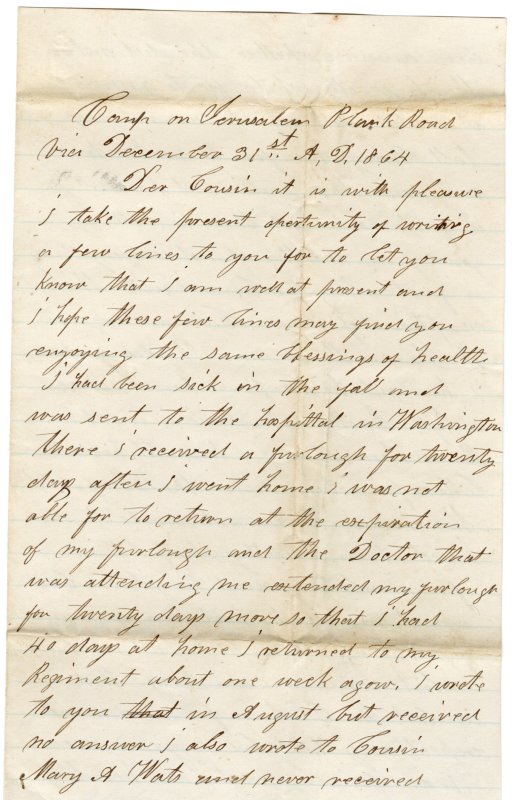 Camp on Jerusalem Plank Road
Via December 31st A, D, 1864
Der Cousin it is with pleasure
I take the present opertunity of writing
a few lines to you for to let you
Know that I am well at present and
I hope these few lines may find you
enjoying the same blessings of health
I had been sick in the fall and
was sent to the hospittal in Washington
there I received a furlough for twenty
days after I went home I was not
able for to return at the expiration
of my furlough and the Doctor that
was attending me extended my furlough
for twenty days more so that I had
40 days at home I returned to my
Regiment about one week agow. I wrote
to you that in August but received
no answer I also wrote to Cousin
Mary A Wats and never received